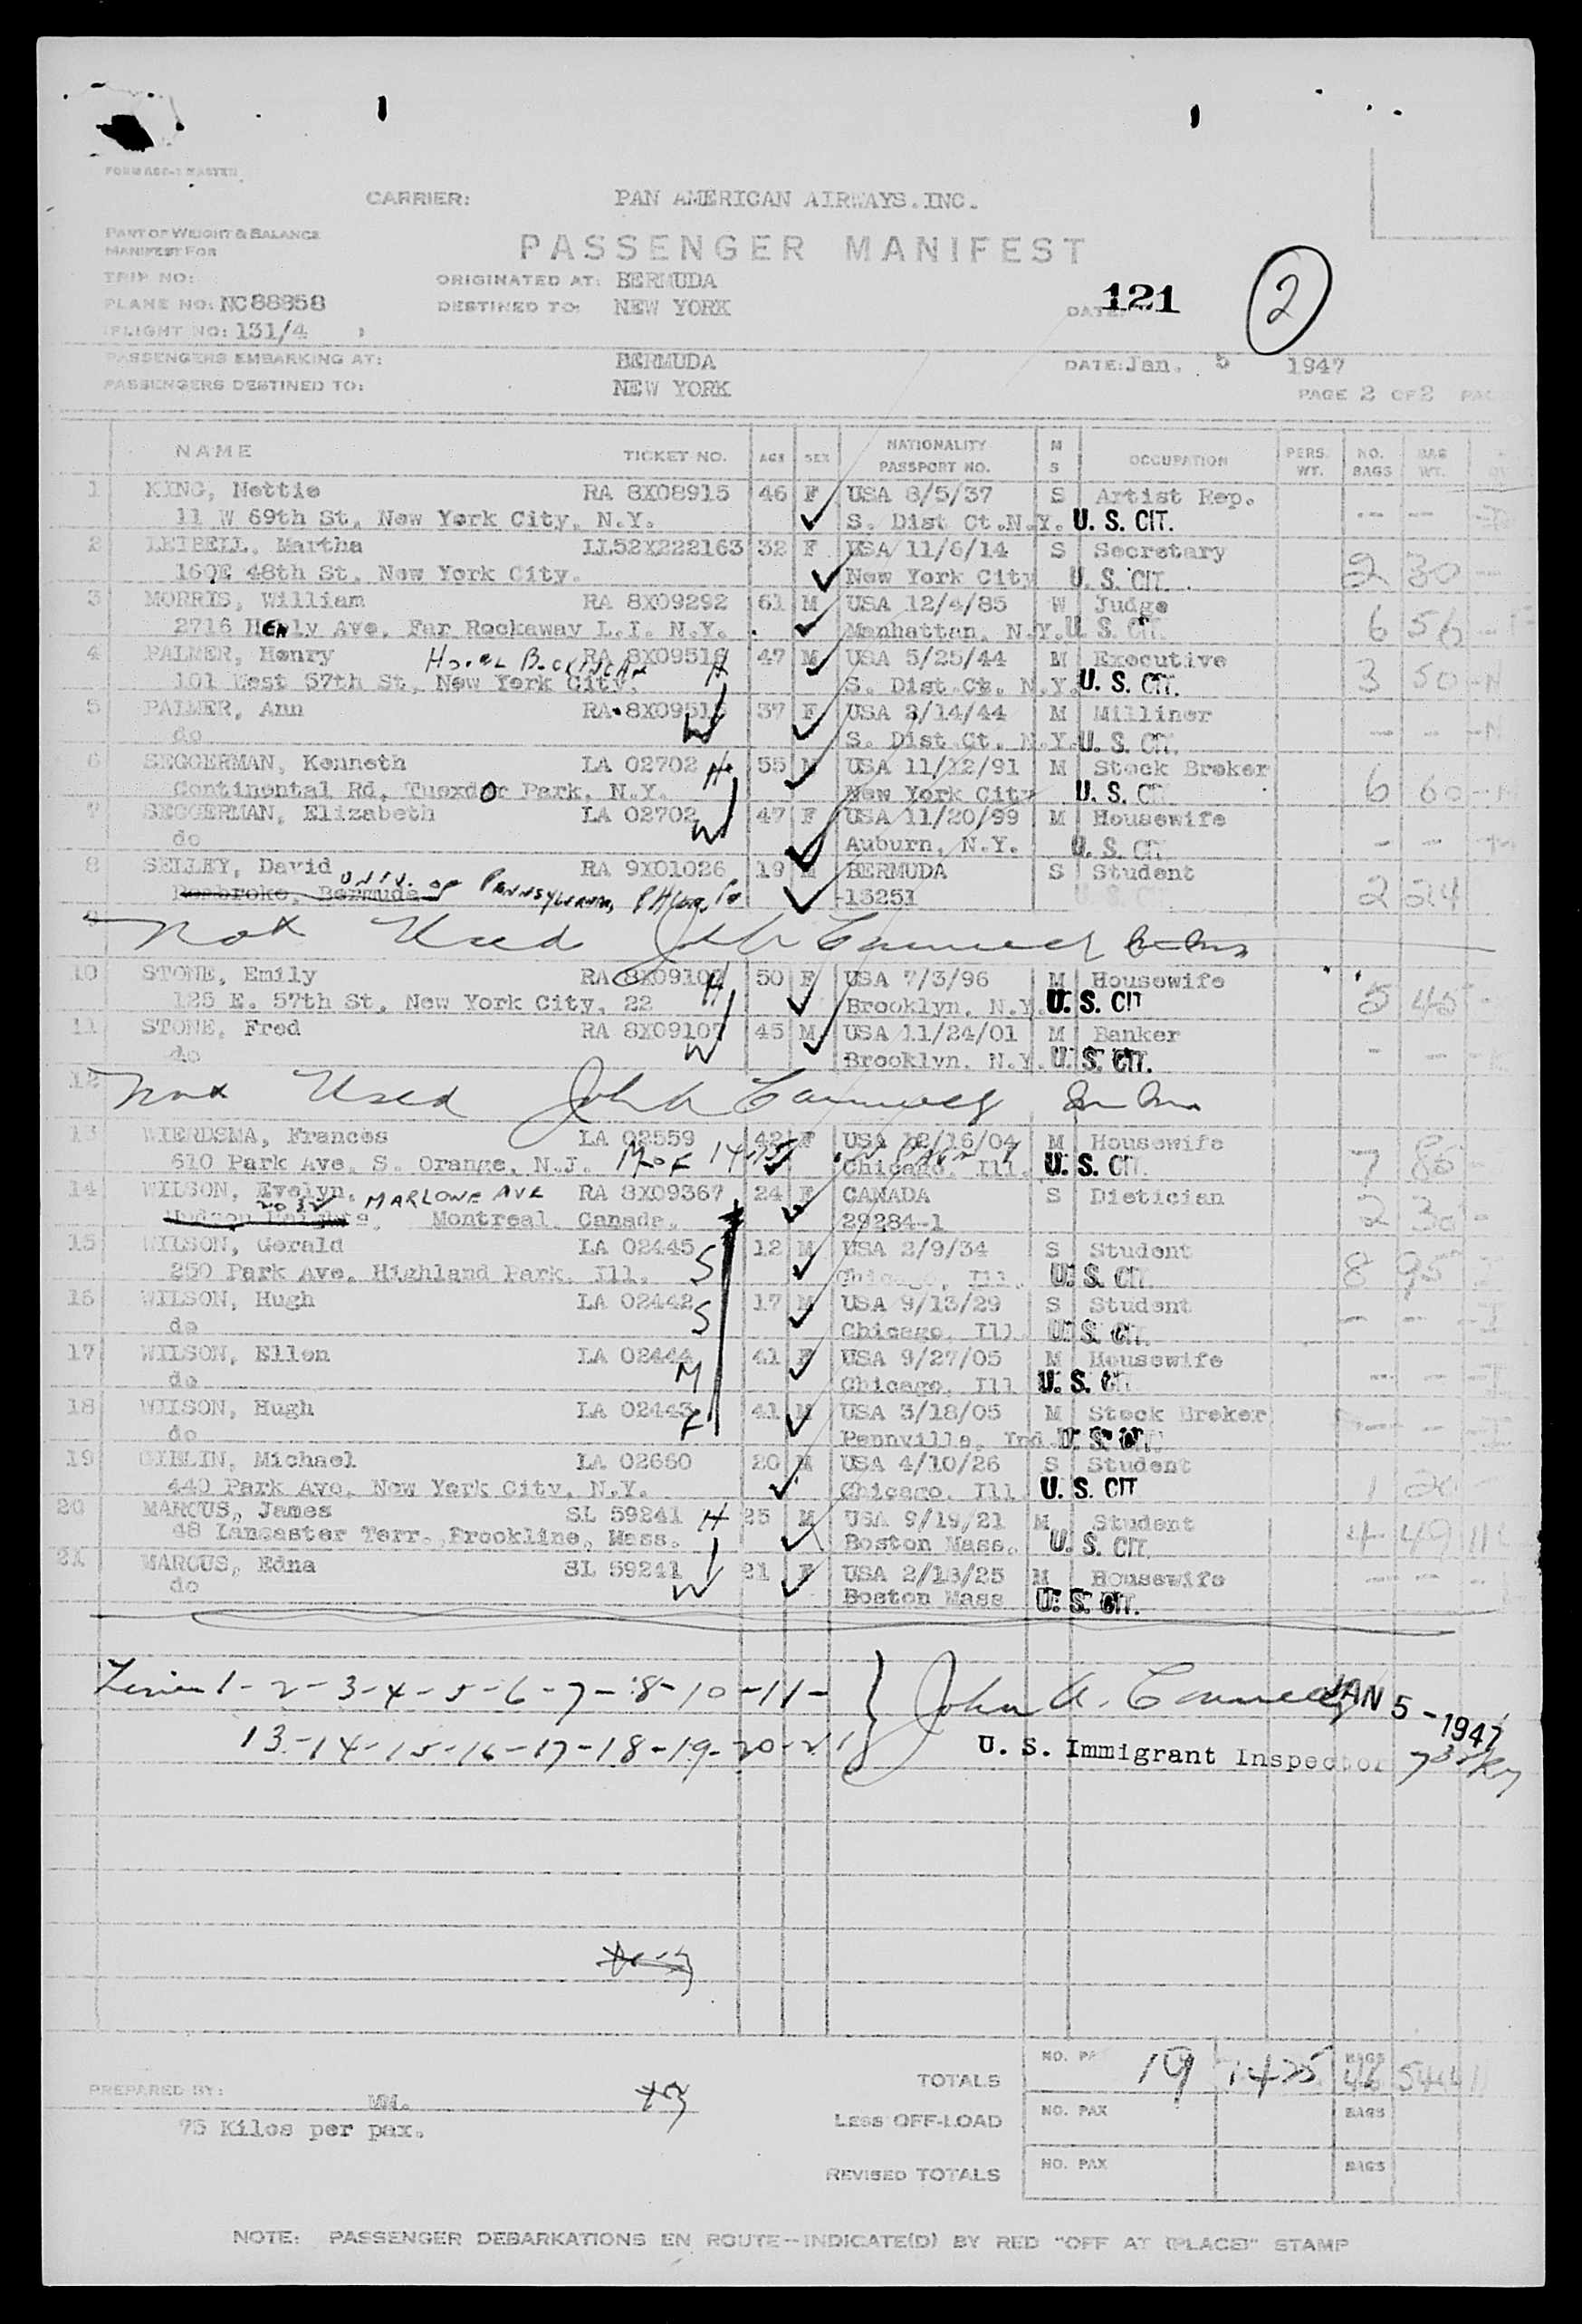 FORM ACC-1 MASTER
CARRIER: PAN AMERICAN AIRWAYS.INC.
PART OF WEIGHT & BALANCE
MANIFEST FOR
PASSENGER MANIFEST
TRIP NO: ORIGINATED AT: BERMUDA
PLANE NO: NC88858 DESTINED TO: NEW YORK DATE: 121 2
FLIGHT NO: 131/4
PASSENGERS EMBARKING AT: BERMUDA DATE: Jan. 5 1947
PASSENGERS DESTINED TO: NEW YORK
PAGE 2 OF 2
NAME TICKET NO. AGE SEX NATIONALITY PASSPORT NO. M S OCCUPATION PERS. WT. NO. BAGS BAG WT.
1 KING, Nettie RA 8X08915 46 F USA 8/5/37 S Artist Rep.
11 W 69th St, New York City, N.Y. S. Dist Ct.N.Y. U. S. CIT. -- --
2 LEIBELL, Martha LL52X222163 32 F USA 11/6/14 S Secretary
160E 48th St, New York City. New York City U. S. CIT. 2 30 -
3 MORRIS, William RA 8X09292 61 M USA 12/4/85 W Judge
2716 HENly Ave, Far Rockaway L.I. N.Y. Manhattan, N.Y. U. S. CIT. 6 56 -
4 PALMER, Henry RA 8X09516 H 47 M USA 5/25/44 M Executive
101 West 57th St, New York City. S. Dist.Ct. N.Y. U. S. CIT. 3 50 -N
5 PALMER, Ann RA 8X09515 W 37 F USA 8/14/44 M Milliner
do S. Dist.Ct. N.Y. U. S. CIT. - - -N
6 SEGGERMAN, Kenneth LA 02702 H 55 M USA 11/12/91 M Stock Broker
Continental Rd, Tuexdor Park, N.Y. New York City U. S. CIT 6 60 -
7 SEGGERMAN, Elizabeth LA 02702 W 47 F USA 11/20/99 M Housewife
do Auburn, N.Y. U. S. CIT - - -
8 SELLEY, David RA 9X01026 19 M BERMUDA S Student
Pembroke, Bermuda UNIV. OF PENNSYLVANIA, 13251 2 24
9 Not Used
10 STONE, Emily RA 8X09107 H 50 F USA 7/3/96 M Housewife
125 E. 57th St, New York City, 22 Brooklyn, N.Y. U. S. CIT 5 45 -
11 STONE, Fred RA 8X09107 W 45 M USA 11/24/01 M Banker
do Brooklyn, N.Y. U. S. CIT. - -
12 Not Used
13 WIERDSMA, Frances LA 02559 42 F USA 12/16/04 M Housewife
610 Park Ave, S. Orange, N.J. Chicago, Ill. U. S. CIT. 7 86 -
14 WILSON, Evelyn. MARLOWE AVE RA 8X09367 24 F CANADA S Dietician
Hudson Heights, Montreal Canada. 29284-1 2 30 -
15 WILSON, Gerald LA 02445 S 12 M USA 2/9/34 S Student
250 Park Ave, Highland Park, Ill. Chicago, Ill. U. S. CIT. 8 95
16 WILSON, Hugh LA 02442 S 17 M USA 9/13/29 S Student
do Chicago, Ill U. S. CIT. - - -
17 WILSON, Ellen LA 02444 M 41 F USA 9/27/05 M Housewife
do Chicago, Ill U. S. CIT - - -
18 WILSON, Hugh LA 02443 F 41 M USA 3/18/05 M Stock Broker
do Pennville, Ind. U. S. CIT. - - -
19 GIBLIN, Michael LA 02660 20 M USA 4/10/26 S Student
440 Park Ave, New York City, N.Y. Chicago, Ill U. S. CIT 1 20
20 MARCUS, James SL 59241 H 25 M USA 9/19/21 M Student
48 Lancaster Terr., Brookline, Mass. Boston Mass. U. S. CIT. 4 49
21 MARCUS, Edna SL 59241 W 21 F USA 2/13/25 M Housewife
do Boston Mass U. S. CIT.
Lines 1-2-3-4-5-6-7-8-10-11-
13-14-15-16-17-18-19-20-21
JAN 5 - 1947
U. S. Immigrant Inspector
TOTALS NO. PAX 19 1425 BAGS 46 544
PREPARED BY: MM.
75 Kilos per pax.
LESS OFF-LOAD NO. PAX BAGS
REVISED TOTALS NO. PAX BAGS
NOTE: PASSENGER DEBARKATIONS EN ROUTE--INDICATE(D) BY RED "OFF AT (PLACE)" STAMP